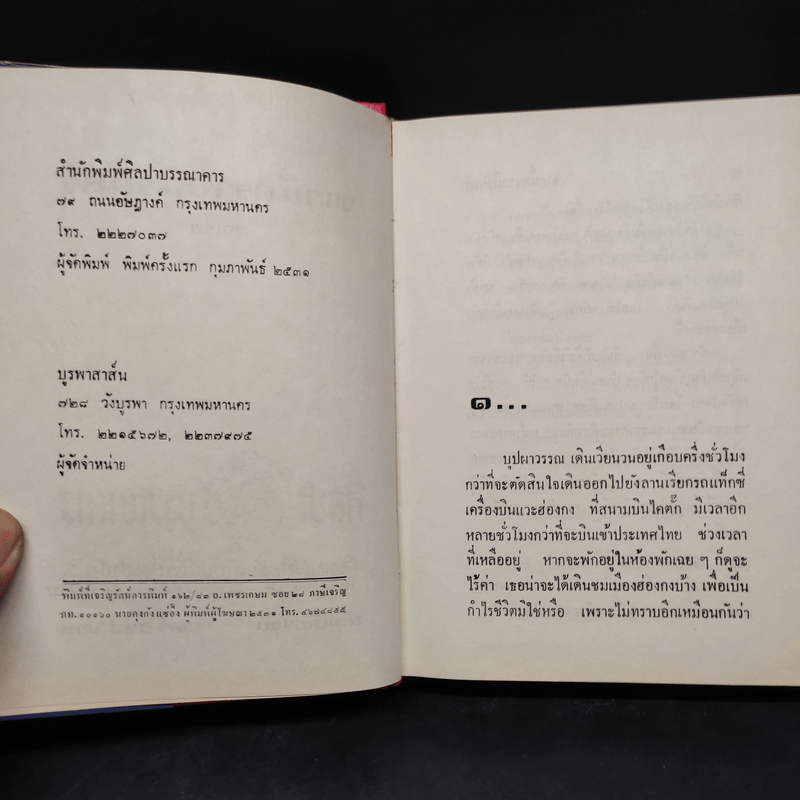 สำนักพิมพ์ศิลปาบรรณาคาร
๗๙ ถนนอัษฎางค์ กรุงเทพมหานคร
โทร. ๒๒๒๗๐๓๗
ผู้จัดพิมพ์ พิมพ์ครั้งแรก กุมภาพันธ์ ๒๕๓๑
บูรพาสาส์น
๗๒๘ วังบูรพา กรุงเทพมหานคร
โทร. ๒๒๑๕๖๗๒, ๒๒๓๗๙๗๕
ผู้จัดจำหน่าย
พิมพ์ที่เจริญรัตน์การพิมพ์ ๑๖๒/๘๓ ถ. เพชรเกษม ซอย ๒๘ ภาษีเจริญ
กท. ๑๐๑๖๐ นายคุงกัง แซ่อึ้ง ผู้พิมพ์ผู้โฆษณา ๒๕๓๑ โทร. ๔๖๗๔๘๕๕
๑...
บุปผาวรรณ เดินเวียนวนอยู่เกือบครึ่งชั่วโมง
กว่าที่จะตัดสินใจเดินออกไปยังลานเรียกรถแท็กซี่
เครื่องบินแวะฮ่องกง ที่สนามบินไคตั๊ก มีเวลาอีก
หลายชั่วโมงกว่าที่จะบินเข้าประเทศไทย ช่วงเวลา
ที่เหลืออยู่ หากจะพักอยู่ในห้องพักเฉย ๆ ก็ดูจะ
ไร้ค่า เธอน่าจะได้เดินชมเมืองฮ่องกงบ้าง เพื่อเป็น
กำไรชีวิตมิใช่หรือ เพราะไม่ทราบอีกเหมือนกันว่า